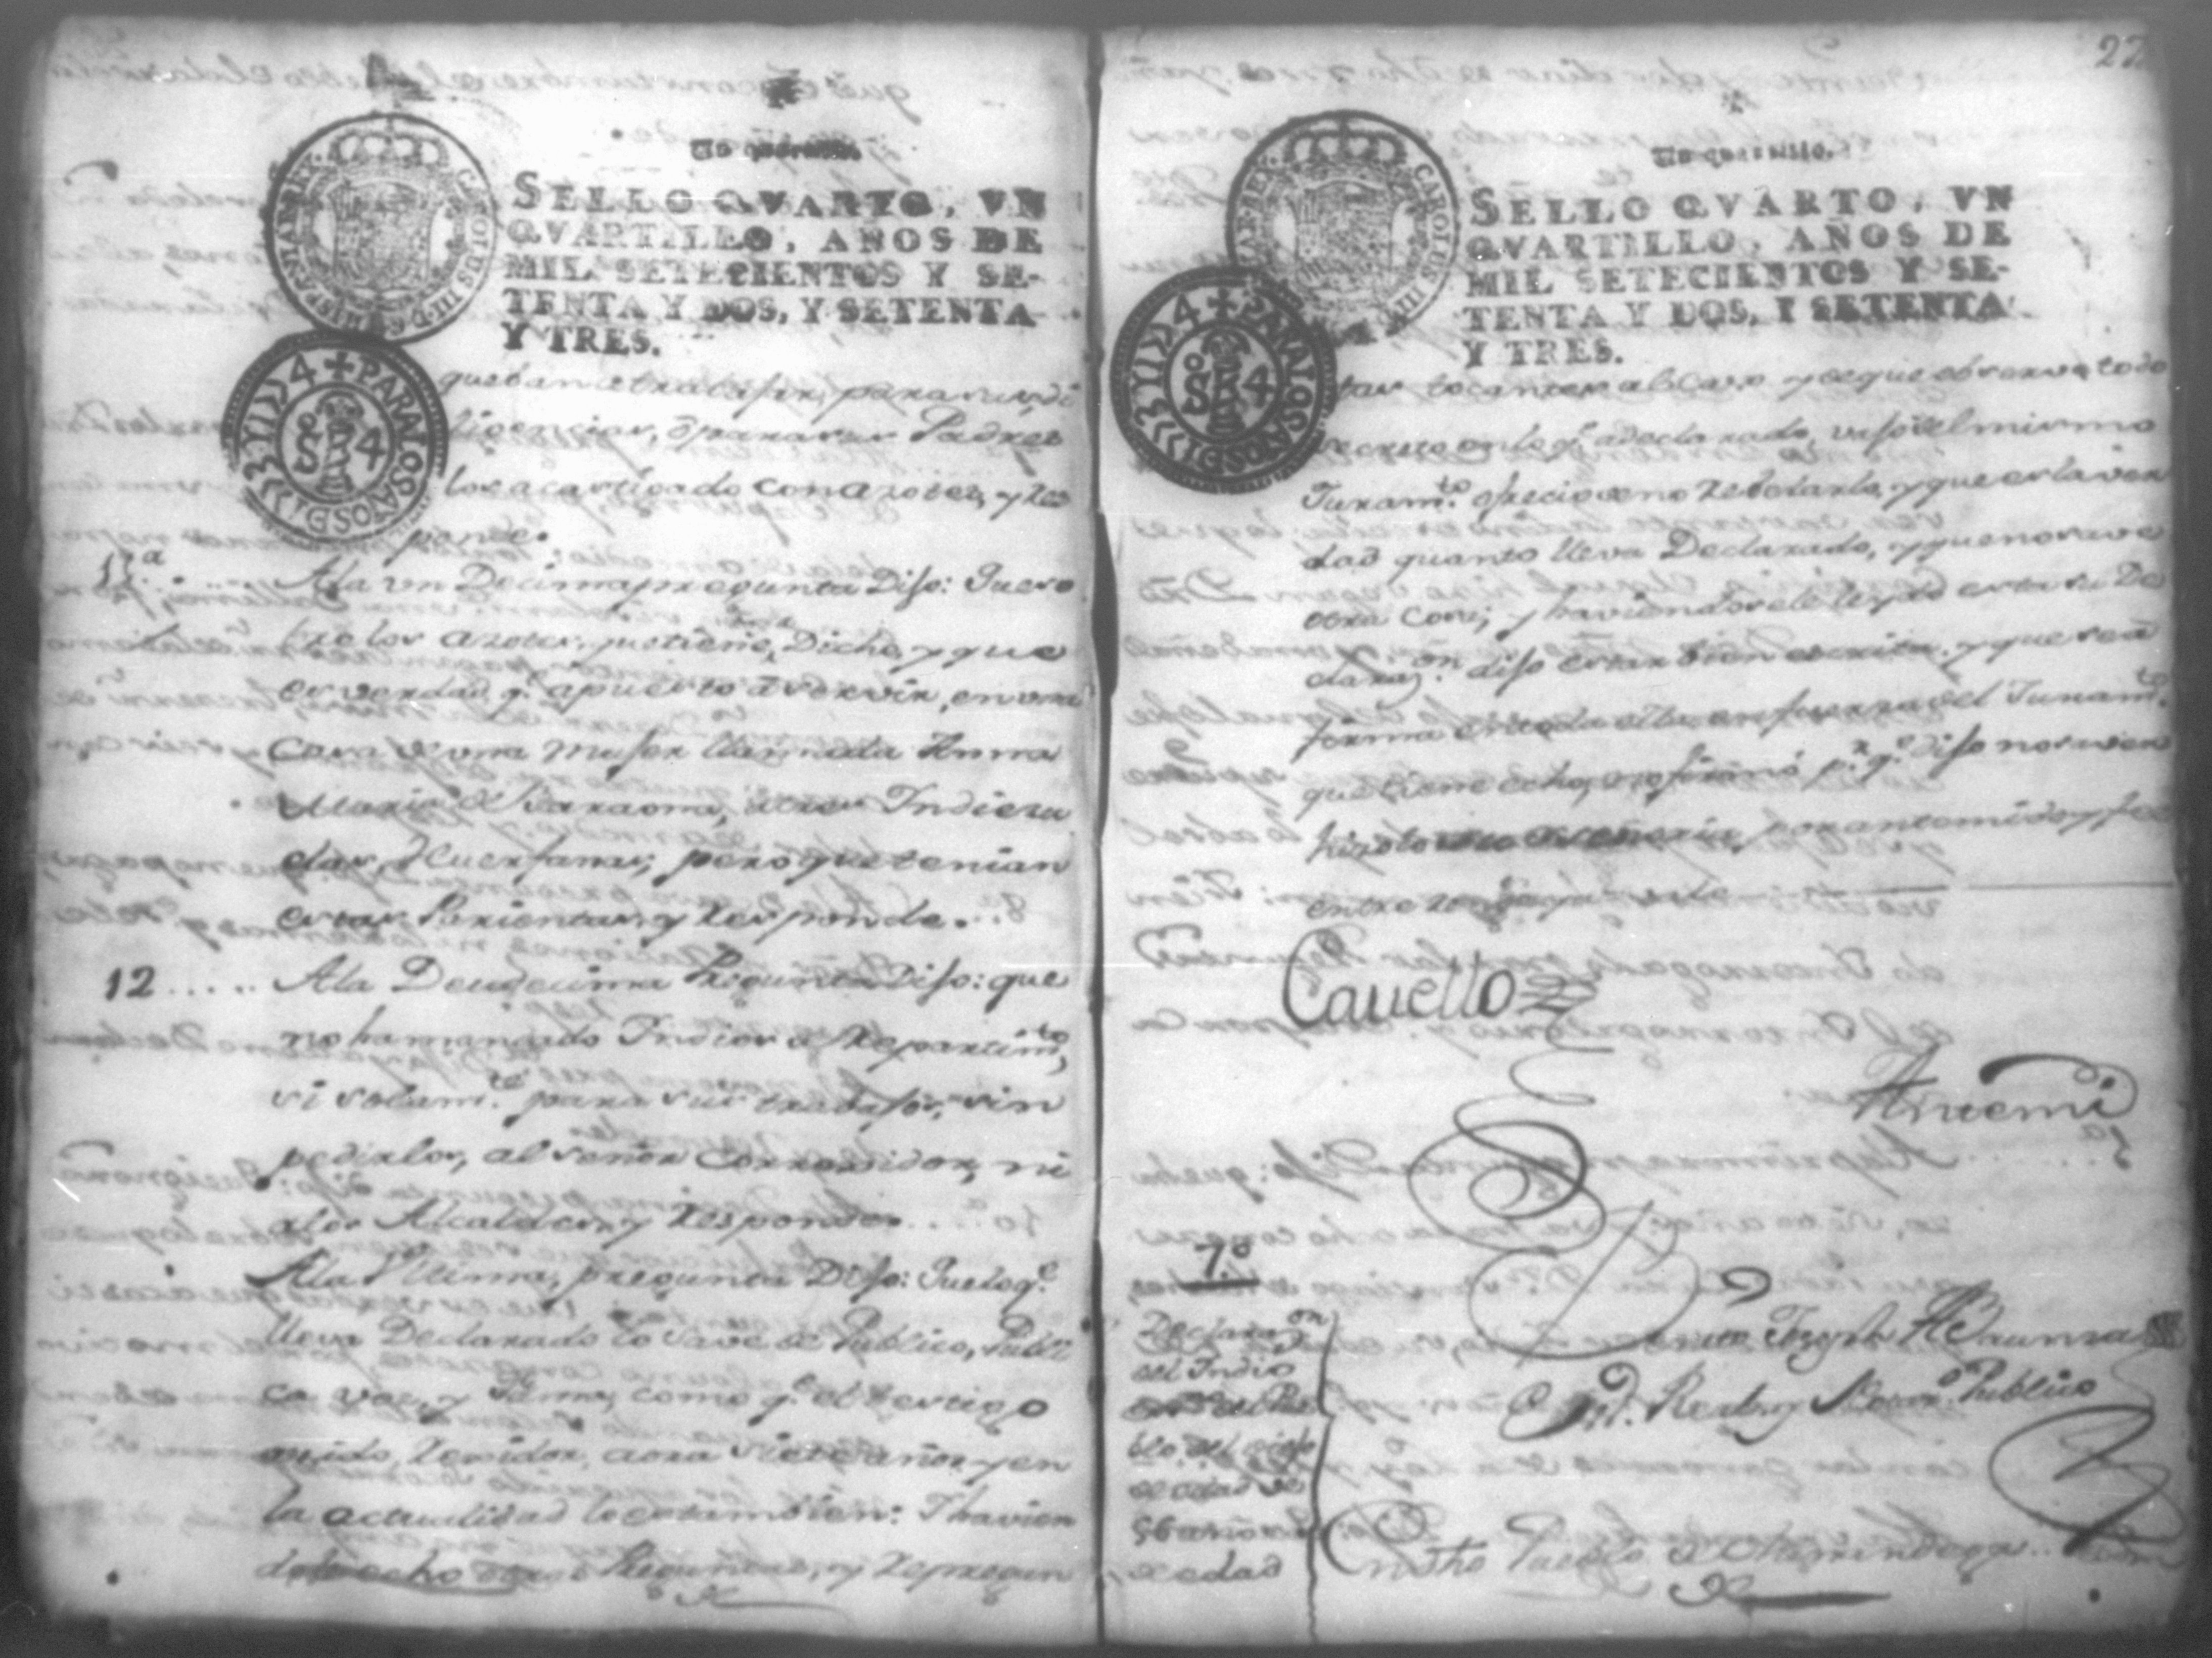 Un quartillo.
SELLO QVARTO, VN
QVARTILLO, AÑOS DE
MIL SETECIENTOS Y SE-
TENTA Y DOS, Y SETENTA
Y TRES.
CAROLUS III D G HISPANIAR REX
PARA LOS AÑOS DE 1774 Y 75
So 4
que ban a trabajar, para sus di
ligencias, ó para sus Padres
los a castigado con azotes, y Res
ponde.
11.ª
A la un Decima pregunta Dijo: Que so
bre los azotes, ya tiene Dicho, y que
es verdad q.e a puesto á servir, en una
Casa de una Mujer llamada Anna
Maria de Baraona, a tres Indiesu
elas, Huerfanas, pero que tenian
estas Parientas, y Responde.
12
A la Deudecima Pregunta Dijo: que
no ha mandado Indios á Repartim.to
si solam.te para sus trabajos, sin
pedirlos, al señor Corregidor, ni
a los Alcaldes, y Responde
A la Vltima, pregunta Dijo: Que lo q.e
lleva Declarado lo save de Publico, Publi
ca voz, y fama, como q.e el testigo
ha sido, Rexidor, aora siete años y en
la actualidad lo es tambien: I havien
dole echo otras Preguntas, y Repregun
27
Un quartillo.
SELLO QVARTO, VN
QVARTILLO, AÑOS DE
MIL SETECIENTOS Y SE-
TENTA Y DOS, Y SETENTA
Y TRES.
CAROLUS III
PARA LOS AÑOS DE 1774 Y
So 4
tas tocantes al caso y de que observe todo
secreto en lo q.e a declarado, vajo del mismo
Juram.to ofrecio de no rebelarlo, y que es la ver
dad quanto lleva Declarado, y que no save
otra cosa; y haviendosele leydo esta su De
claraz.on dijo estar bien escrita, y que se a
firma en toda ella en fuerza del Juram.to
que tiene echo, no firmó p.r q.e dijo no saver
hizolo su Señoria, por ante mi doy fee
Cauello
Ante mi
Benito Joseph
R.l y Publico
7.º
Declara.on
del Indio
del Pue
blo del
de edad de
56 años
de edad
En dho Pueblo de